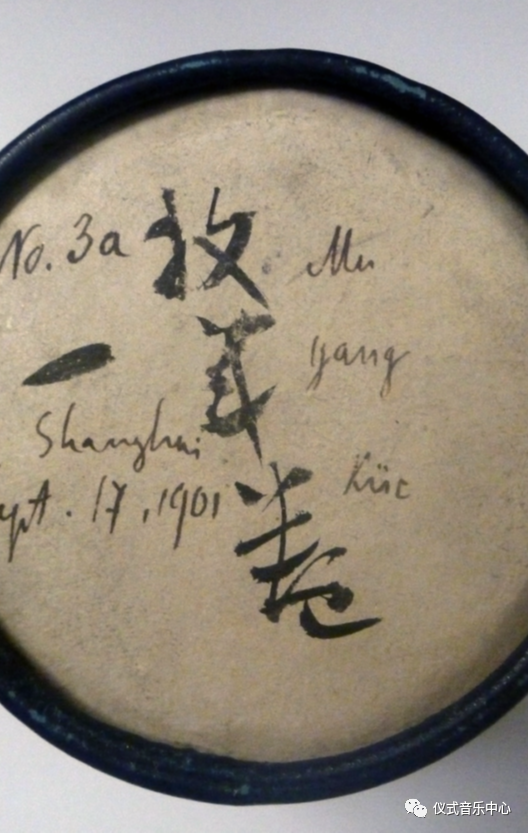 No. 3a
一
Shanghai
ept. 17, 1901
牧羊卷
Mu
yang
仪式音乐中心